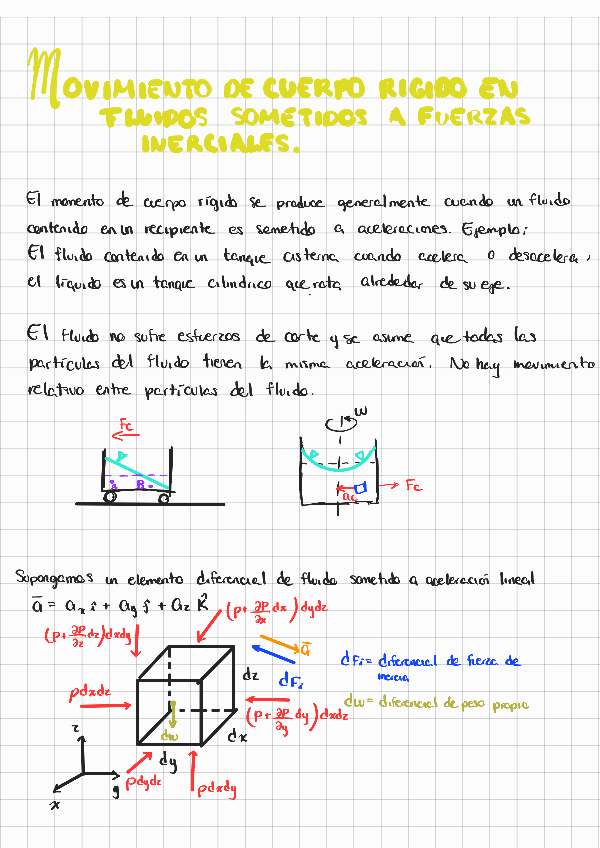 MOVIMIENTO DE CUERPO RIGIDO EN
FLUIDOS SOMETIDOS A FUERZAS
INERCIALES.
El momento de cuerpo rígido se produce generalmente cuando un fluido
contenido en un recipiente es sometido a aceleraciones. Ejemplo:
El fluido contenido en un tanque cisterna cuando acelera o desacelera,
el líquido es un tanque cilindrico que rota alrededor de su eje.
El fluido no sufre esfuerzos de corte y se asume que todas las
partículas del fluido tienen la misma aceleración. No hay movimiento
relativo entre partículas del fluido.
Fc
A B
w
ac
Fc
Supongamos un elemento diferencial de fluido sometido a aceleración lineal
ā = ax î + ay ĵ + az k̂
(p + ∂P/∂x dx) dydz
(p + ∂P/∂z dz) dxdy
ā
dFi
dFi = diferencial de fuerza de
inercia
dz
pdxdz
(p + ∂P/∂y dy) dxdz
dw = diferencial de peso propio
dw
dx
dy
z
y
x
pdydz
pdxdy